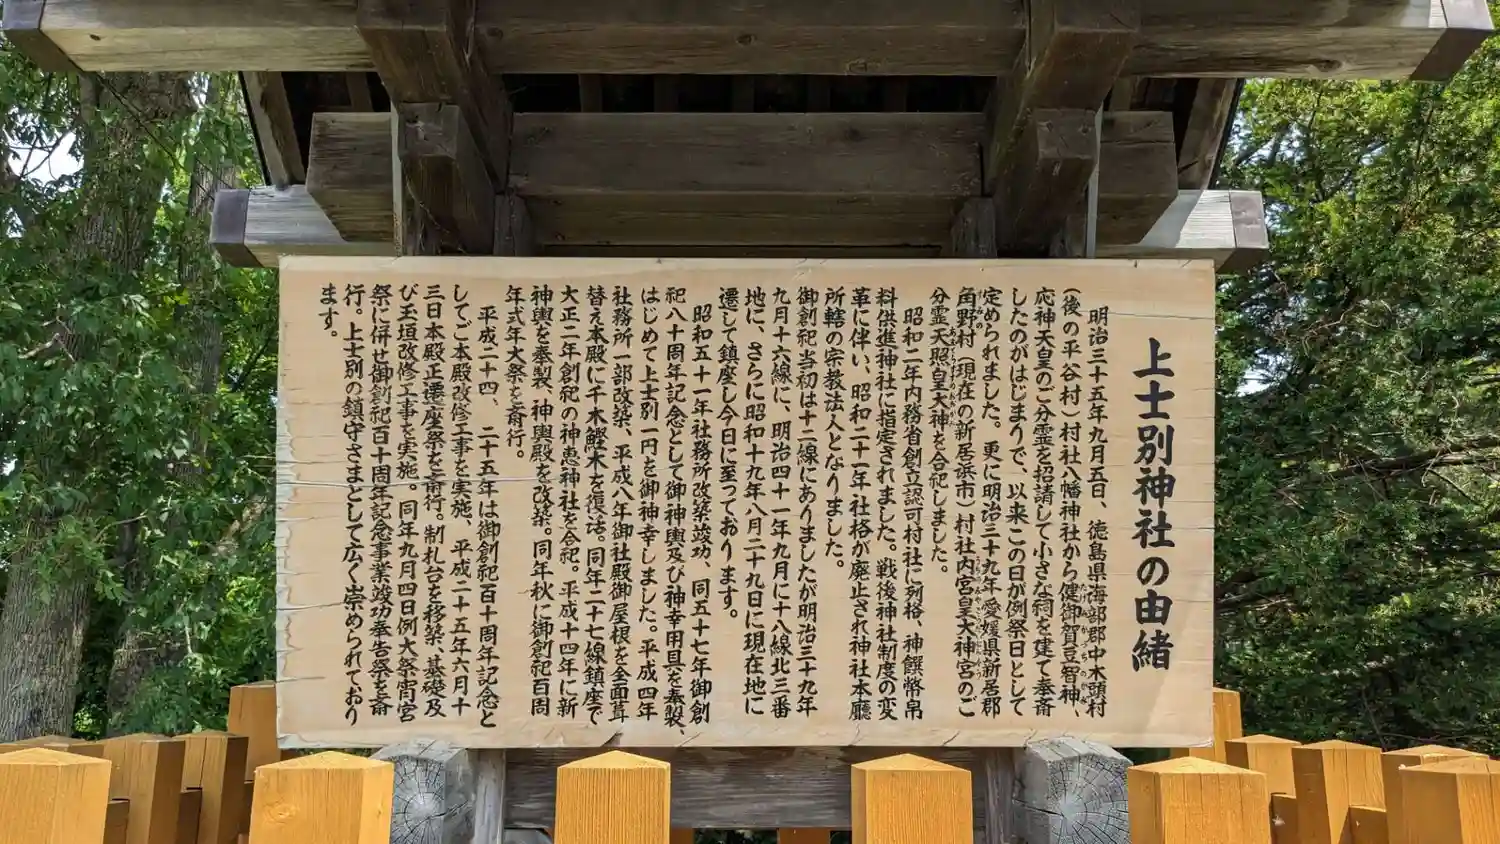 上士別神社の由緒
明治三十五年九月五日、徳島県海部郡中木頭村
(後の平谷村)村社八幡神社から健御賀豆智神、
応神天皇のご分霊を招請して小さな祠を建て奉斎
したのがはじまりで、以来この日が例祭日として
定められました。更に明治三十九年愛媛県新居郡
角野村(現在の新居浜市)村社内宮皇大神宮のご
分霊天照皇大神を合祀しました。
昭和二年内務省創立認可村社に列格、神饌幣帛
料供進神社に指定されました。戦後神社制度の変
革に伴い、昭和二十一年社格が廃止され神社本廳
所轄の宗教法人となりました。
御創祀当初は十二線にありましたが明治三十九年
九月十六線に、明治四十一年九月に十八線北三番
地に、さらに昭和十九年八月二十九日に現在地に
遷して鎮座し今日に至っております。
昭和五十一年社務所改築竣功、同五十七年御創
祀八十周年記念として御神輿及び神幸用具を奉製、
はじめて上士別一円を御神幸しました。平成四年
社務所一部改築、平成八年御社殿御屋根を全面葺
替え本殿に千木鰹木を復活。同年二十七線鎮座で
大正二年創祀の神恵神社を合祀。平成十四年に新
神輿を奉製、神輿殿を改築。同年秋に御創祀百周
年式年大祭を斎行。
平成二十四、二十五年は御創祀百十周年記念と
してご本殿改修工事を実施、平成二十五年六月十
三日本殿正遷座祭を斎行。制札台を移築、基礎及
び玉垣改修工事を実施。同年九月四日例大祭宵宮
祭に併せ御創祀百十周年記念事業竣功奉告祭を斎
行。上士別の鎮守さまとして広く崇められており
ます。